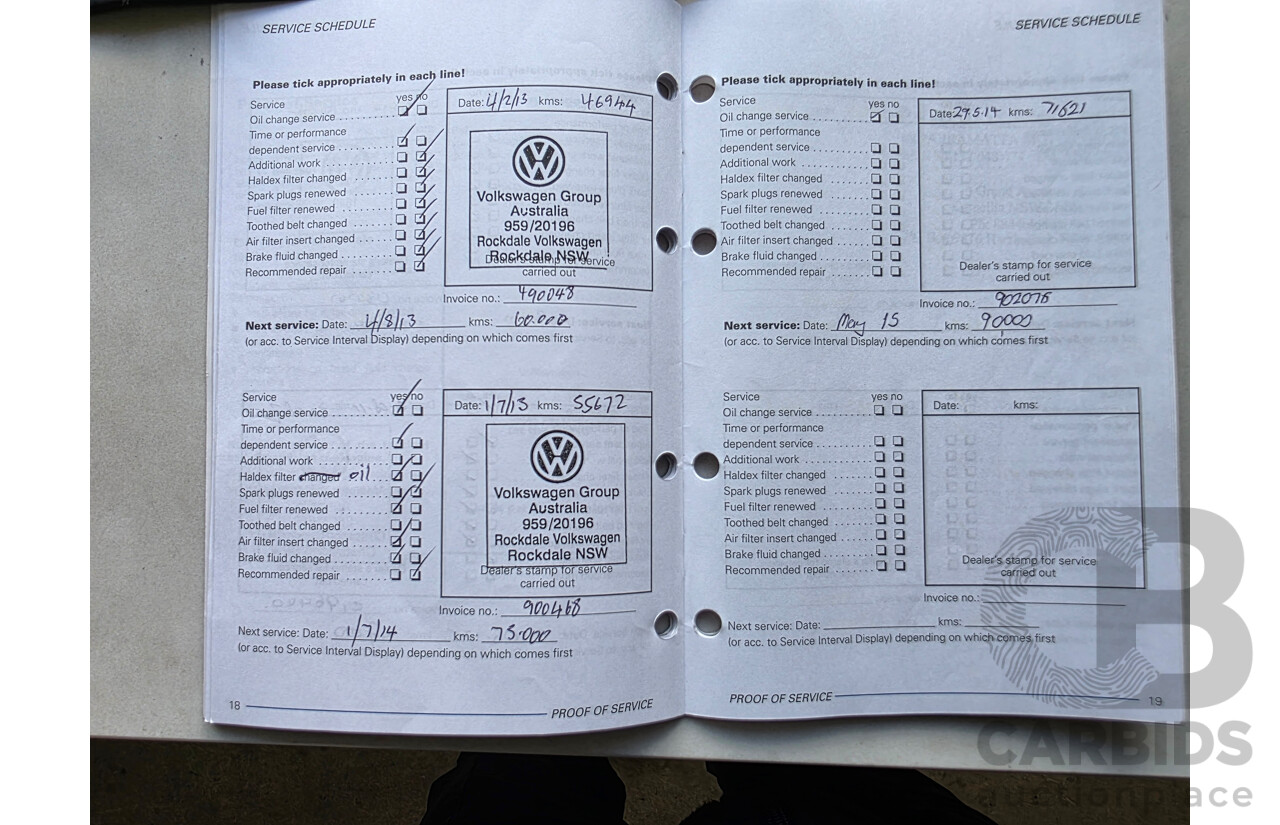 SERVICE SCHEDULE
Please tick appropriately in each line!
Service yes no
Oil change service
Time or performance
dependent service
Additional work
Haldex filter changed
Spark plugs renewed
Fuel filter renewed
Toothed belt changed
Air filter insert changed
Brake fluid changed
Recommended repair
Date: 4/2/13 kms: 46944
Volkswagen Group
Australia
959/20196
Rockdale Volkswagen
Rockdale NSW
Dealer's stamp for service
carried out
Invoice no.: 490048
Next service: Date: 4/8/13 kms: 60.000
(or acc. to Service Interval Display) depending on which comes first
Service yes no
Oil change service
Time or performance
dependent service
Additional work
Haldex filter changed oil
Spark plugs renewed
Fuel filter renewed
Toothed belt changed
Air filter insert changed
Brake fluid changed
Recommended repair
Date: 1/7/13 kms: 55672
Volkswagen Group
Australia
959/20196
Rockdale Volkswagen
Rockdale NSW
Dealer's stamp for service
carried out
Invoice no.: 900468
Next service: Date: 1/7/14 kms: 75.000
(or acc. to Service Interval Display) depending on which comes first
18 PROOF OF SERVICE
SERVICE SCHEDULE
Please tick appropriately in each line!
Service yes no
Oil change service
Time or performance
dependent service
Additional work
Haldex filter changed
Spark plugs renewed
Fuel filter renewed
Toothed belt changed
Air filter insert changed
Brake fluid changed
Recommended repair
Date: 29.5.14 kms: 71621
Dealer's stamp for service
carried out
Invoice no.: 902076
Next service: Date: May 15 kms: 90000
(or acc. to Service Interval Display) depending on which comes first
Service yes no
Oil change service
Time or performance
dependent service
Additional work
Haldex filter changed
Spark plugs renewed
Fuel filter renewed
Toothed belt changed
Air filter insert changed
Brake fluid changed
Recommended repair
Date: kms:
Dealer's stamp for service
carried out
Invoice no.:
Next service: Date: kms:
(or acc. to Service Interval Display) depending on which comes first
PROOF OF SERVICE 19
CARBIDS
auctionplace